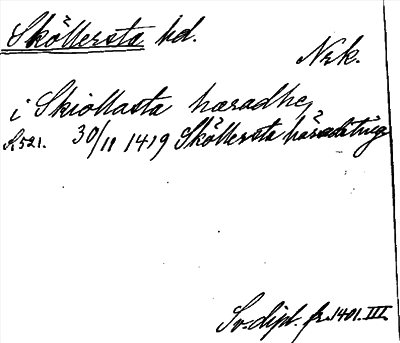 Sköllersta hd.
Nrk.
i Skiollasta hæradhe,
S. 521. 30/11 1419 Sköllersta häradsting
Sv. dipl. fr. 1401. III.